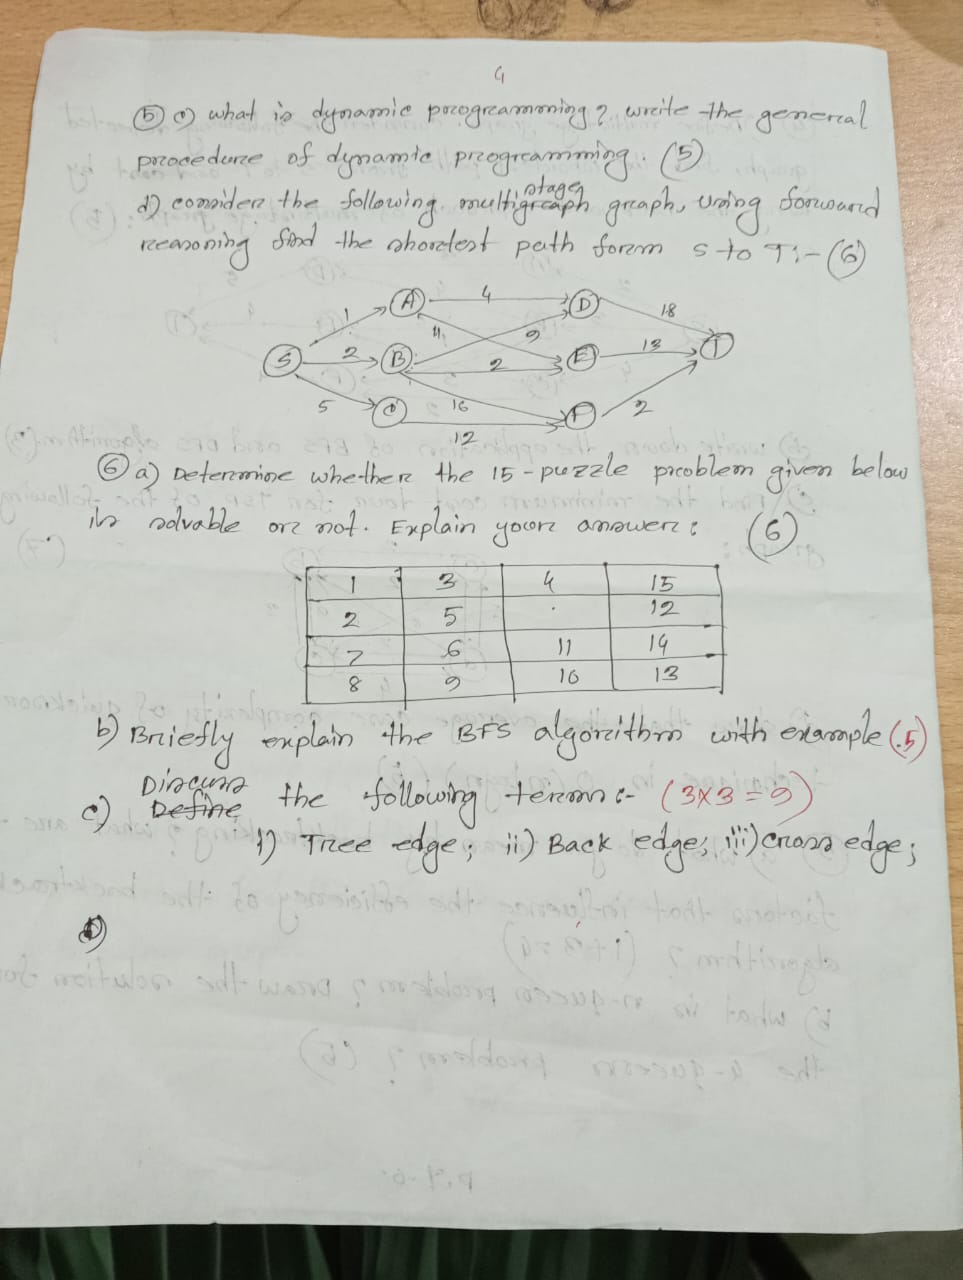 4
⑤ c) what is dynamic programming? write the general
procedure of dynamic programming. (5)
d) consider the following multistage graph, using forward
reasoning find the shortest path form S to T:- (6)
S A B C D E F T
1 2 5 4 11 9 2 16 12 18 13 2
⑥ a) Determine whether the 15-puzzle problem given below
is solvable or not. Explain your answer: (6)
1 3 4 15
2 5 . 12
7 6 11 14
8 9 10 13
b) Briefly explain the BFS algorithm with example (5)
Discuss
c) Define the following terms:- (3x3=9)
i) Tree edge; ii) Back edge; iii) cross edge;